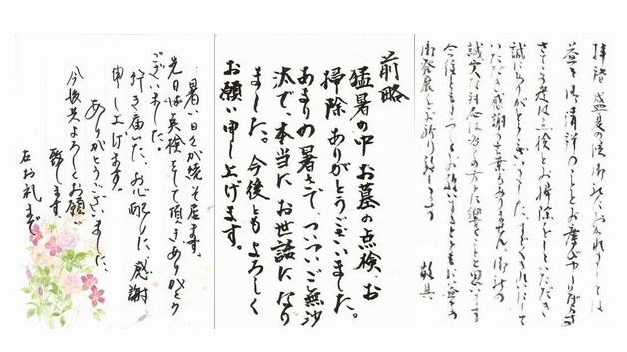 拝啓 盛夏の候 御社におかれましては
益々御清祥のこととお慶び申し上げます
さて 点検とお掃除をしていただき
誠にありがとうございました。
いただき感謝の言葉がありません。御社の
誠実な対応は と思います
今後ともよろしくお願いするとともに益々の
御発展をお祈り致します
敬具
前略
猛暑の中 お墓の点検 お
掃除 ありがとうございました。
あまりの暑さで、ついついご無沙
汰で、本当に お世話になり
ました。今後とも よろしく
お願い申し上げます。
暑い日々が続き居ます。
先日は点検をして頂きありがとう
ございました。
行き届いた、お心配りに 感謝
申し上げます。
ありがとうございました、
今後共よろしくお願い
致します。
右お礼まで